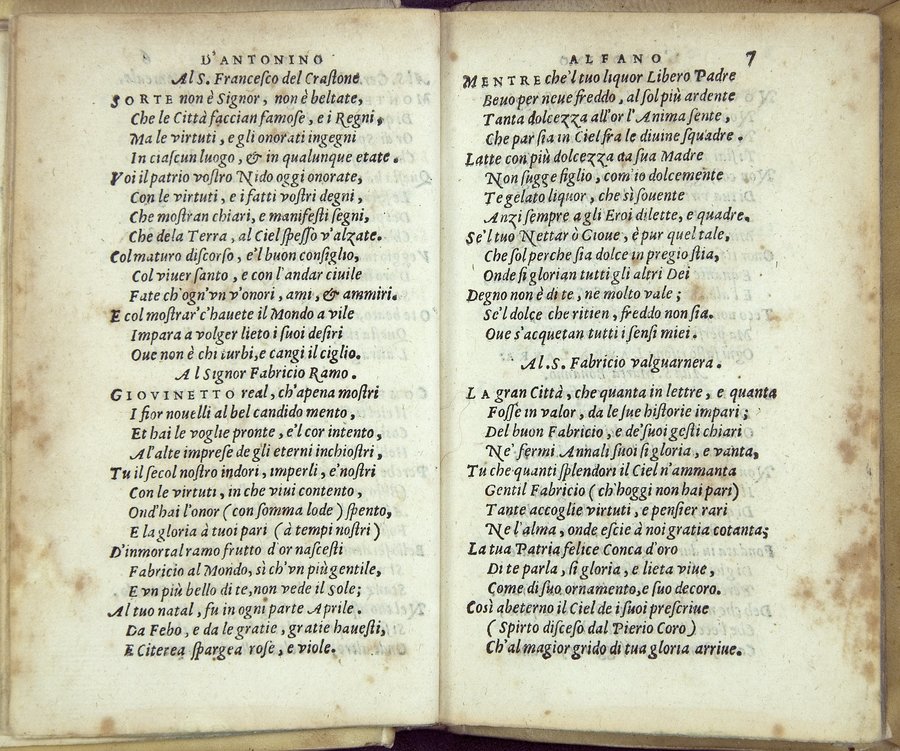 D'ANTONINO
Al S. Francesco del Crastone
SORTE non è Signor, non è beltate,
Che le Città faccian famose, e i Regni,
Ma le virtuti, e gli onorati ingegni
In ciascun luogo, & in qualunque etate.
Voi il patrio vostro Nido oggi onorate,
Con le virtuti, e i fatti vostri degni,
Che mostran chiari, e manifesti segni,
Che dela Terra, al Ciel spesso v'alzate.
Col maturo discorso, e'l buon consiglio,
Col viuer santo, e con l'andar ciuile
Fate ch'ogn'vn v'onori, ami, & ammiri.
E col mostrar'c'hauete il Mondo a vile
Impara a volger lieto i suoi desiri
Oue non è chi turbi, e cangi il ciglio.
Al Signor Fabricio Ramo.
GIOVINETTO real, ch'apena mostri
I fior nouelli al bel candido mento,
Et hai le voglie pronte, e'l cor intento,
A l'alte imprese de gli eterni inchiostri,
Tu il secol nostro indori, imperli, e'nostri
Con le virtuti, in che viui contento,
Ond'hai l'onor (con somma lode) spento,
E la gloria à tuoi pari (à tempi nostri)
D'inmortal ramo frutto d'or nascesti
Fabricio al Mondo, sì ch'vn più gentile,
E vn più bello di te, non vede il Sole;
Al tuo natal, fu in ogni parte Aprile.
Da Febo, e da le gratie, gratie hauesti,
E Citerea spargea rose, e viole.
ALFANO 7
MENTRE che'l tuo liquor Libero Padre
Beuo per neue freddo, al sol più ardente
Tanta dolcezza all'or l'Anima sente,
Che par sia in Ciel fra le diuine squadre.
Latte con più dolcezza da sua Madre
Non sugge figlio, com'io dolcemente
Te gelato liquor, che sì souente
Anzi sempre a gli Eroi dilette, e quadre.
Se'l tuo Nettar ò Gioue, è pur quel tale,
Che sol perche sia dolce in pregio stia,
Onde si glorian tutti gli altri Dei
Degno non è di te, ne molto vale;
Se'l dolce che ritien, freddo non sia.
Oue s'acquetan tutti i sensi miei.
Al.S. Fabricio valguarnera.
LA gran Città, che quanta in lettre, e quanta
Fosse in valor, da le sue historie impari;
Del buon Fabricio, e de'suoi gesti chiari
Ne' fermi Annali suoi si gloria, e vanta,
Tu che quanti splendori il Ciel n'ammanta
Gentil Fabricio (ch'hoggi non hai pari)
Tante accoglie virtuti, e pensier rari
Ne l'alma, onde escie à noi gratia cotanta;
La tua Patria felice Conca d'oro
Di te parla, si gloria, e lieta viue,
Come di suo ornamento, e suo decoro.
Così abeterno il Ciel de i suoi prescriue
(Spirto disceso dal Pierio Coro)
Ch'al magior grido di tua gloria arriue.